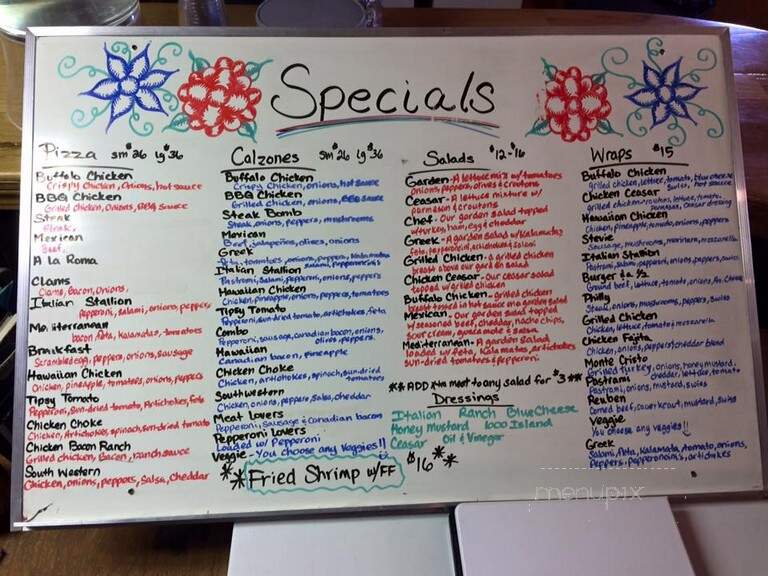 Specials
Pizza sm $26 lg $36
Buffalo Chicken
Crispy Chicken, Onions, hot sauce
BBQ Chicken
Grilled Chicken, Onions, BBQ Sauce
Steak
Steak,
Mexican
Beef,
A la Roma
Clams
Clams, Bacon, Onions,
Italian Stallion
pepperoni, salami, onions, peppers
Mediterranean
bacon, feta, Kalamatas, tomatoes
Breakfast
Scrambled egg, peppers, onions, sausage
Hawaiian Chicken
Chicken, pineapple, tomatoes, onions, peppers
Tipsy Tomato
Pepperoni, sun-dried tomato, Artichokes, feta
Chicken Choke
Chicken, Artichokes, spinach, sun-dried tomato
Chicken Bacon Ranch
Grilled chicken, Bacon, ranch sauce
South Western
Chicken, onions, peppers, Salsa, Cheddar
Calzones sm $26 lg $36
Buffalo Chicken
Crispy Chicken, onions, hot sauce
BBQ Chicken
Grilled Chicken, onions, BBQ sauce
Steak Bomb
Steak, onions, peppers, mushrooms
Mexican
Beef, Jalapeños, olives, onions
Greek
Feta, tomatoes, onions, peppers, Kalamatas
Italian Stallion
Pastrami, Salami, pepperoni, onions, peppers
Hawaiian Chicken
Chicken, pineapple, onions, peppers, tomatoes
Tipsy Tomato
Pepperoni, sun-dried tomato, artichokes, feta
Combo
Pepperoni, sausage, canadian bacon, onions,
olives, peppers.
Hawaiian
Canadian bacon, pineapple
Chicken Choke
Chicken, Artichokes, spinach, sun-dried
tomatoes
Southwestern
Chicken, onions, peppers, salsa, cheddar
Meat Lovers
Pepperoni, Sausage & Canadian bacon
Pepperoni Lovers
Loaded w/ Pepperoni
Veggie - You choose any Veggies!!
**Fried Shrimp w/FF $16**
Salads $12-$16
Garden - A lettuce mix w/ tomatoes
onions, peppers, olives & croutons
Ceasar - A lettuce mixture w/
parmesan & croutons
Chef - Our garden salad topped
w/ turkey, ham, egg & cheddar
Greek - A garden salad w/ Kalamatas,
feta, pepperoncini, artichokes & salami
Grilled Chicken - a grilled chicken
breast above our garden salad
Chicken Ceasar - Our ceasar salad
topped w/ grilled chicken
Buffalo Chicken - grilled chicken
breast tossed in hot sauce on a garden salad
Mexican - Our garden salad topped
w/ seasoned beef, cheddar, nacho chips,
sour cream, guacamole & salsa
Mediterranean - A garden salad
loaded w/ feta, Kalamatas, artichokes
sun-dried tomatoes & pepperoni
** ADD xtra meat to any salad for $3 **
Dressings
Italian Ranch Blue Cheese
Honey Mustard 1000 Island
Ceasar Oil & Vinegar
Wraps $15
Buffalo Chicken
Grilled chicken, lettuce, tomato, blue cheese
Swiss, hot sauce
Chicken Ceasar
Grilled chicken, croutons, lettuce, tomato,
parmesan, Ceasar dressing
Hawaiian Chicken
Chicken, pineapple, tomatoes, onions, peppers
Stevie
Sausage, mushrooms, marinara, mozzarella
Italian Stallion
Pastrami, Salami, pepperoni, onions, peppers, swiss
Burger
Ground beef, lettuce, tomato, onions,
Philly
Steak, onions, mushrooms, peppers, swiss
Grilled Chicken
Chicken, lettuce, tomato, mozzarella
Chicken Fajita
Chicken, onions, peppers, cheddar blend
Monte Cristo
Grilled turkey, onions, honey mustard,
cheddar, lettuce, tomato
Pastrami
Pastrami, onions, mustard, swiss
Reuben
Corned beef, sauerkraut, mustard, swiss
Veggie
You choose any veggies!!
Greek
Salami, feta, Kalamata, tomato, onions,
Peppers, pepperoncini's, artichokes
menupix